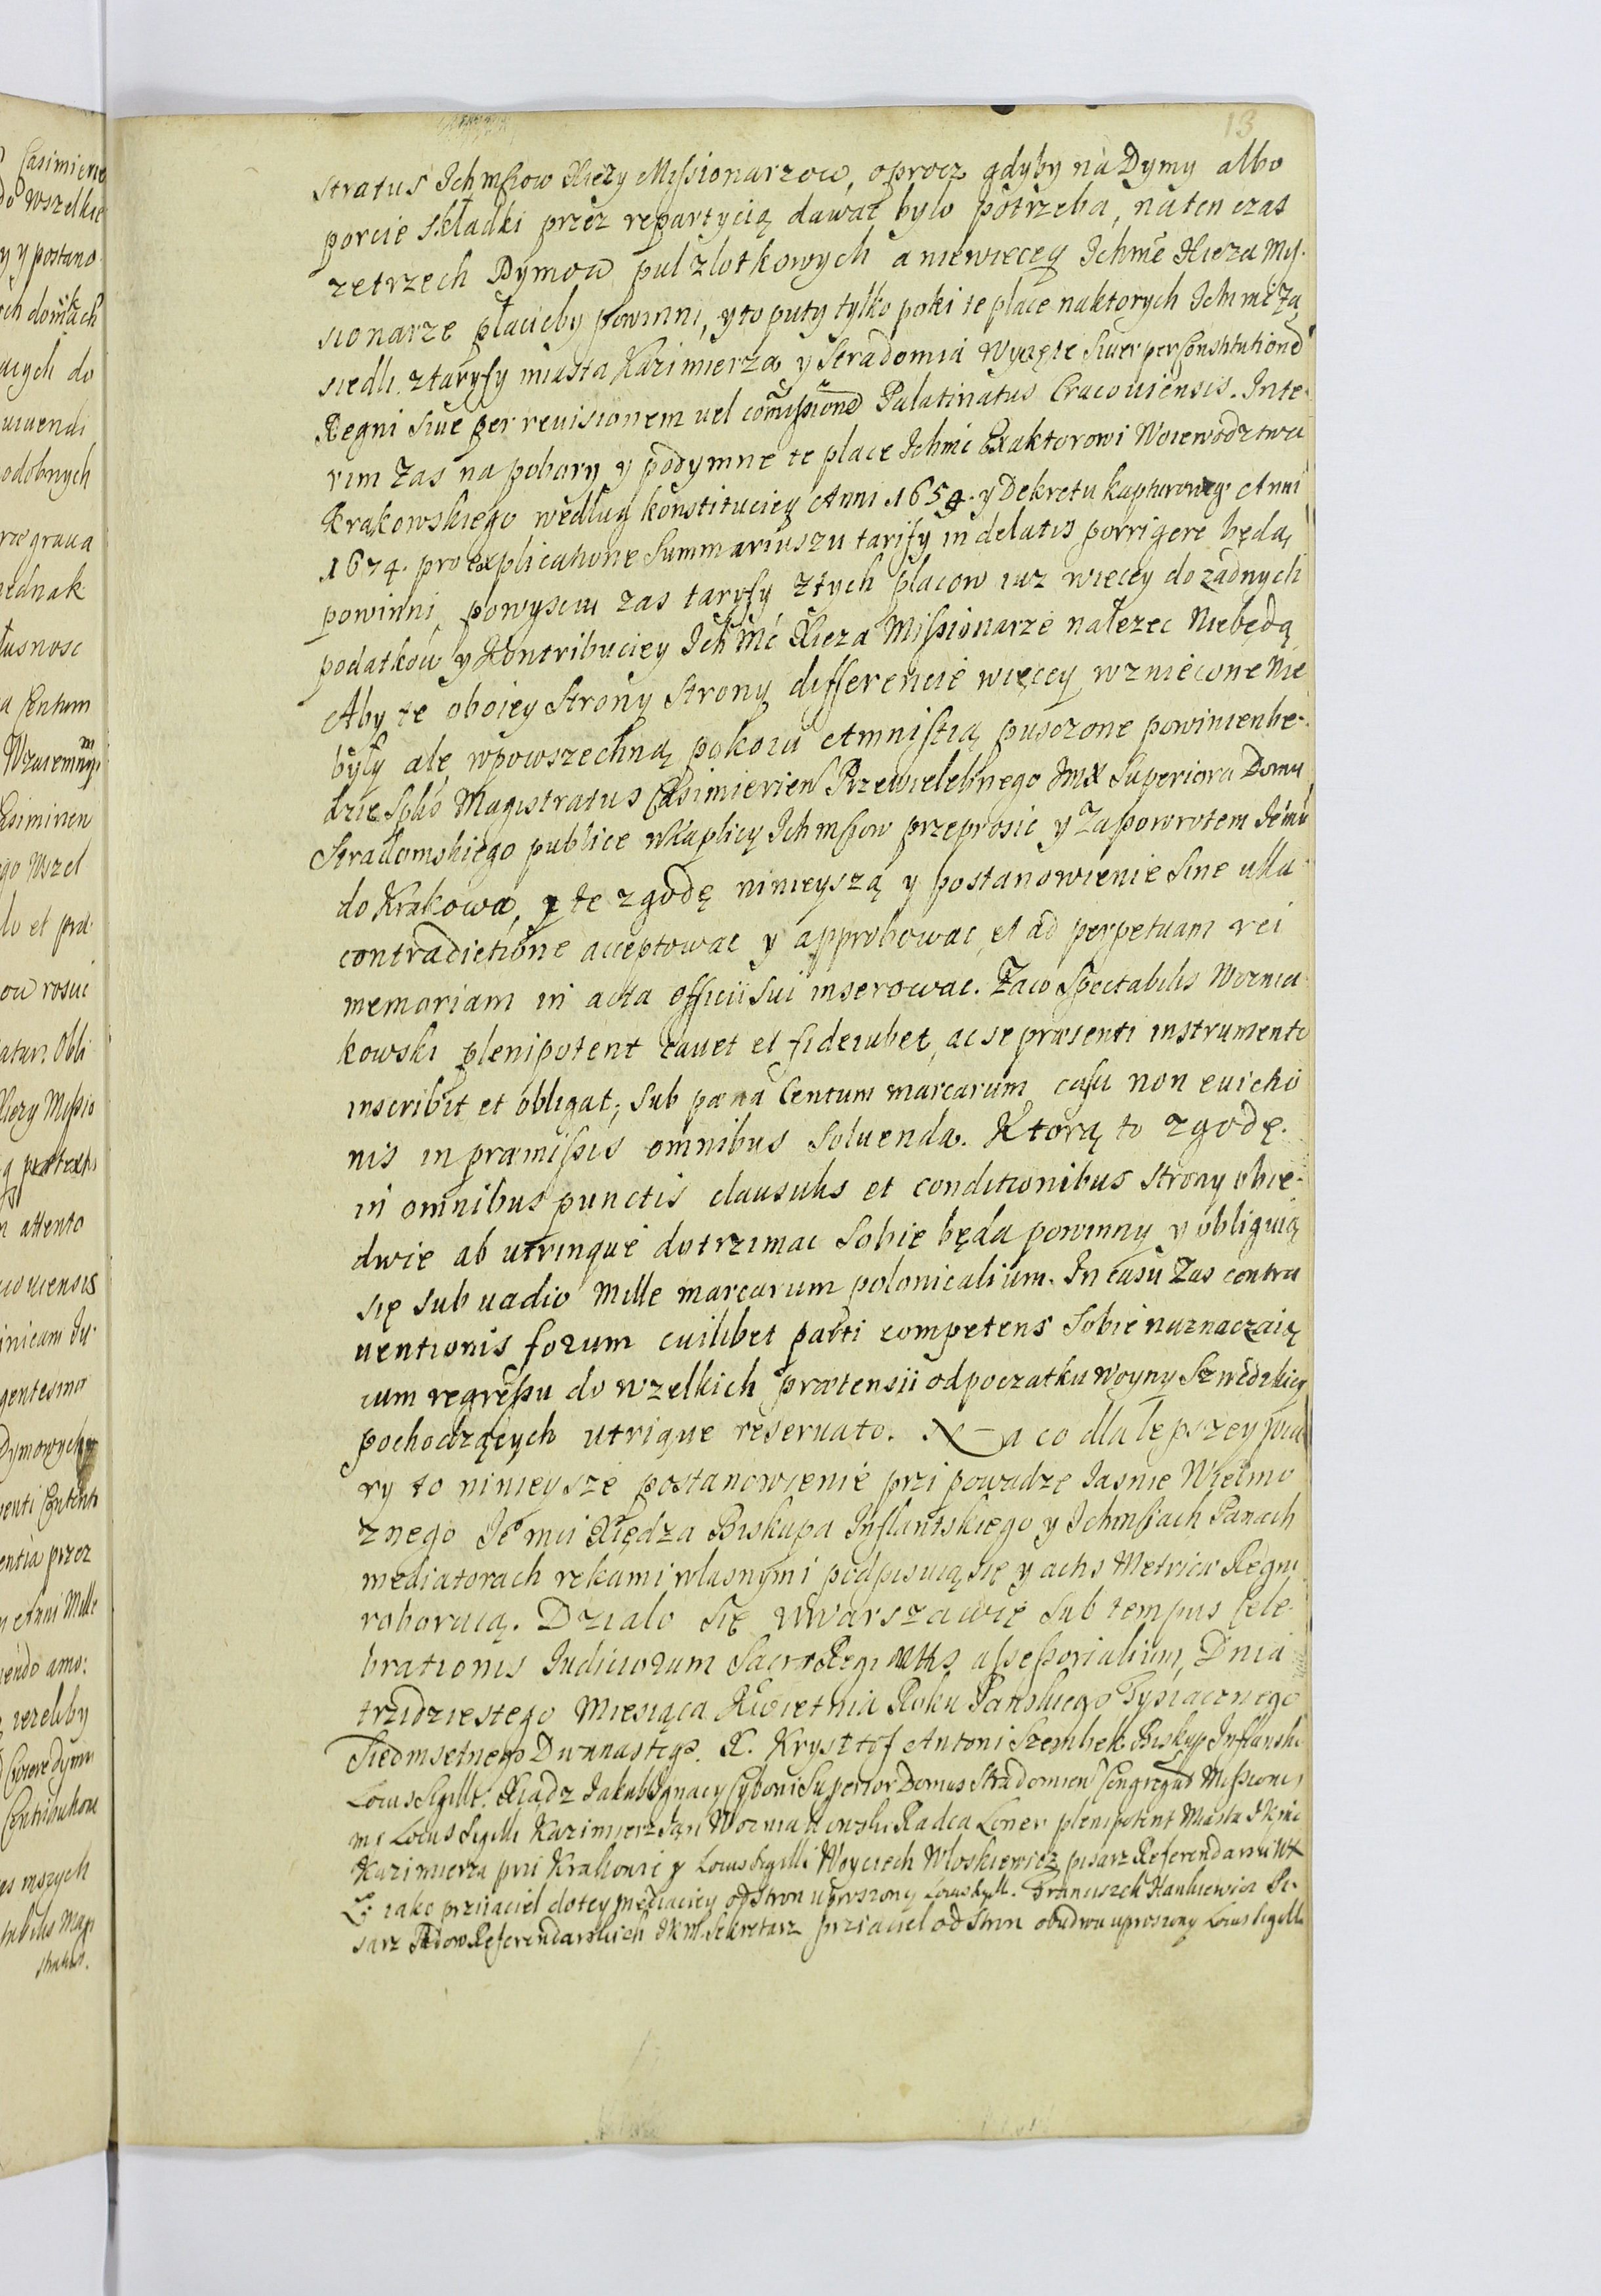 13
stratus Ichmsciow Xięzy Missionarzow, oprocz gdyby na Dymy albo
porcie składki przez repartycią dawac bylo potrzeba, naten czas
zetrzech Dymow pul zlotkowych a niewięcey Ichmc Xięza Mis-
sionarze płacicby powinni, y to puty tylko poki te place naktorych Ichmc Za
siedli. z taryfy miasta Kazimierza y Stradomia wyięte siue per Constitutione
Regni siue per reuisionem uel comissione Palatinatus Cracouiensis. Inte-
rim zas na pobory y podymne te place Ichmc Exaktorowi Woiewodztwa
Krakowskiego według konstituciey Anni 1654. y Dekretu kapturoweg. Anni
1674. pro explicatione Summariuszu tarify in delatis porrigere będą
powinni, powysciu zas taryfy z tych placow iuz więcey do zadnych
podatkow y Kontribuciey Ich Mć Xięza Missionarze nalezec Niebędą
Aby te oboiey Strony Strony differencie więcey wzniecone nie
były ale wpowszechną pokoiu Amnistią pusczone powinien bę-
dzie Spblis Magistratus Casimirien Przewielebnego Jmx Superiora Domu
Stradomskiego publice w kaplicy Ichmsciow przeprosic y Zapowrotem Iemu
do Krakowa, y te zgodę ninieyszą y postanowienie sine ulla
contradictione acceptowac y approbowac, et ad perpetuam rei
memoriam in acta officii sui inserowac. Zaco Spectabilis Woznia-
kowski plenipotent cauet et fideiubet, ac se præsenti instrumento
inscribit et obligat; sub pæna Centum marcarum casu non euictio
nis in præmissis omnibus soluenda. Ktorą to zgodę.
in omnibus punctis clausulis et conditionibus strony obie-
dwie ab utrinque dotrzimac sobie będa powinny y obliguią
się sub uadio Mille marcarum polonicalium. In casu zas contra
uentionis forum cuilibet parti competens sobie naznaczaią
cum regressu do wzelkich prætensii odpoczatku woyny Szwedzkiey
pochodzących utrique reseruato. Na co dla lepszey wia
ry to ninieysze postanowienie przi powadze Iasnie Wielmo
znego Ie mci Xiędza Biskupa Inflantskiego y Ichmsciach Panach
mediatorach rekami wlasnymi podpisuią się y actis Metrica Regni
roboruią. Dzialo się w Warszawie sub tempus Cele-
brationis Iudiciorum Sacræ Regi Mttis assessorialium, Dnia
trzidziestego Miesiąca Kwietnia Roku Panskiego Tysiacznego
Siedmsetnego Dwunastego. X. Krysztof Antoni Szembek Biskup Inflanski
Locus Sigilli. Xiadz Iakub Ignacy Cyboni Superior Domus Stradomien Congregnis Missionis
mc Locus Sigilli Kazimierz Jan Wozniakowski Radca Loner plenipotent Miasta JKmc
Kazimierza pri Krakowie y Locus Sigilli Woyciech Wloskiewicz pisarz Referendarski WX
L: iako przijaciel do tey mediaciey od stron uproszony Locus Sigilli. Franciszek Hankiewicz Pi-
sarz Sądow Referendarskich JKM. Sekretarz prziaciel od stron obudwu uproszony Locus Sigilli